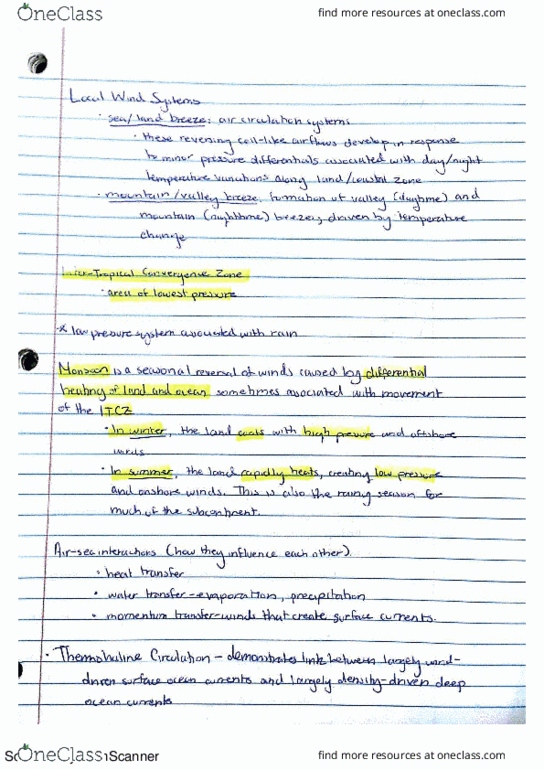 OneClass
find more resources at oneclass.com
Local Wind Systems
· sea/land breeze: air circulation systems
· these reversing cell-like airflows develop in response
to minor pressure differentials associated with day/night
temperature variations along land/coastal zone
· mountain/valley breeze: formation of valley (daytime) and
mountain (nighttime) breezes, driven by temperature
change
Inter-Tropical Convergence Zone
· area of lowest pressure
* low pressure system associated with rain
Monsoon is a seasonal reversal of winds caused by differential
heating of land and ocean sometimes associated with movement
of the ITCZ
· In winter, the land cools with high pressure and offshore
winds
· In summer, the land rapidly heats, creating low pressure
and onshore winds. This is also the rainy season for
much of the subcontinent.
Air-sea interactions (how they influence each other).
· heat transfer
· water transfer - evaporation, precipitation
· momentum transfer - winds that create surface currents.
· Thermohaline Circulation - demonstrates link between largely wind-
driven surface ocean currents and largely density-driven deep
ocean currents
OneClass
Scanner
find more resources at oneclass.com